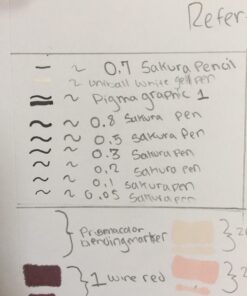 Refer
~ 0.7 Sakura Pencil
~ uniball white gel pen
~ Pigma graphic 1
~ 0.8 Sakura pen
~ 0.5 Sakura Pen
~ 0.3 Sakura Pen
~ 0.2 Sakura pen
~ 0.1 sakura pen
~ 0.05 Sakura pen
Prismacolor
blending marker
} 1 wine red